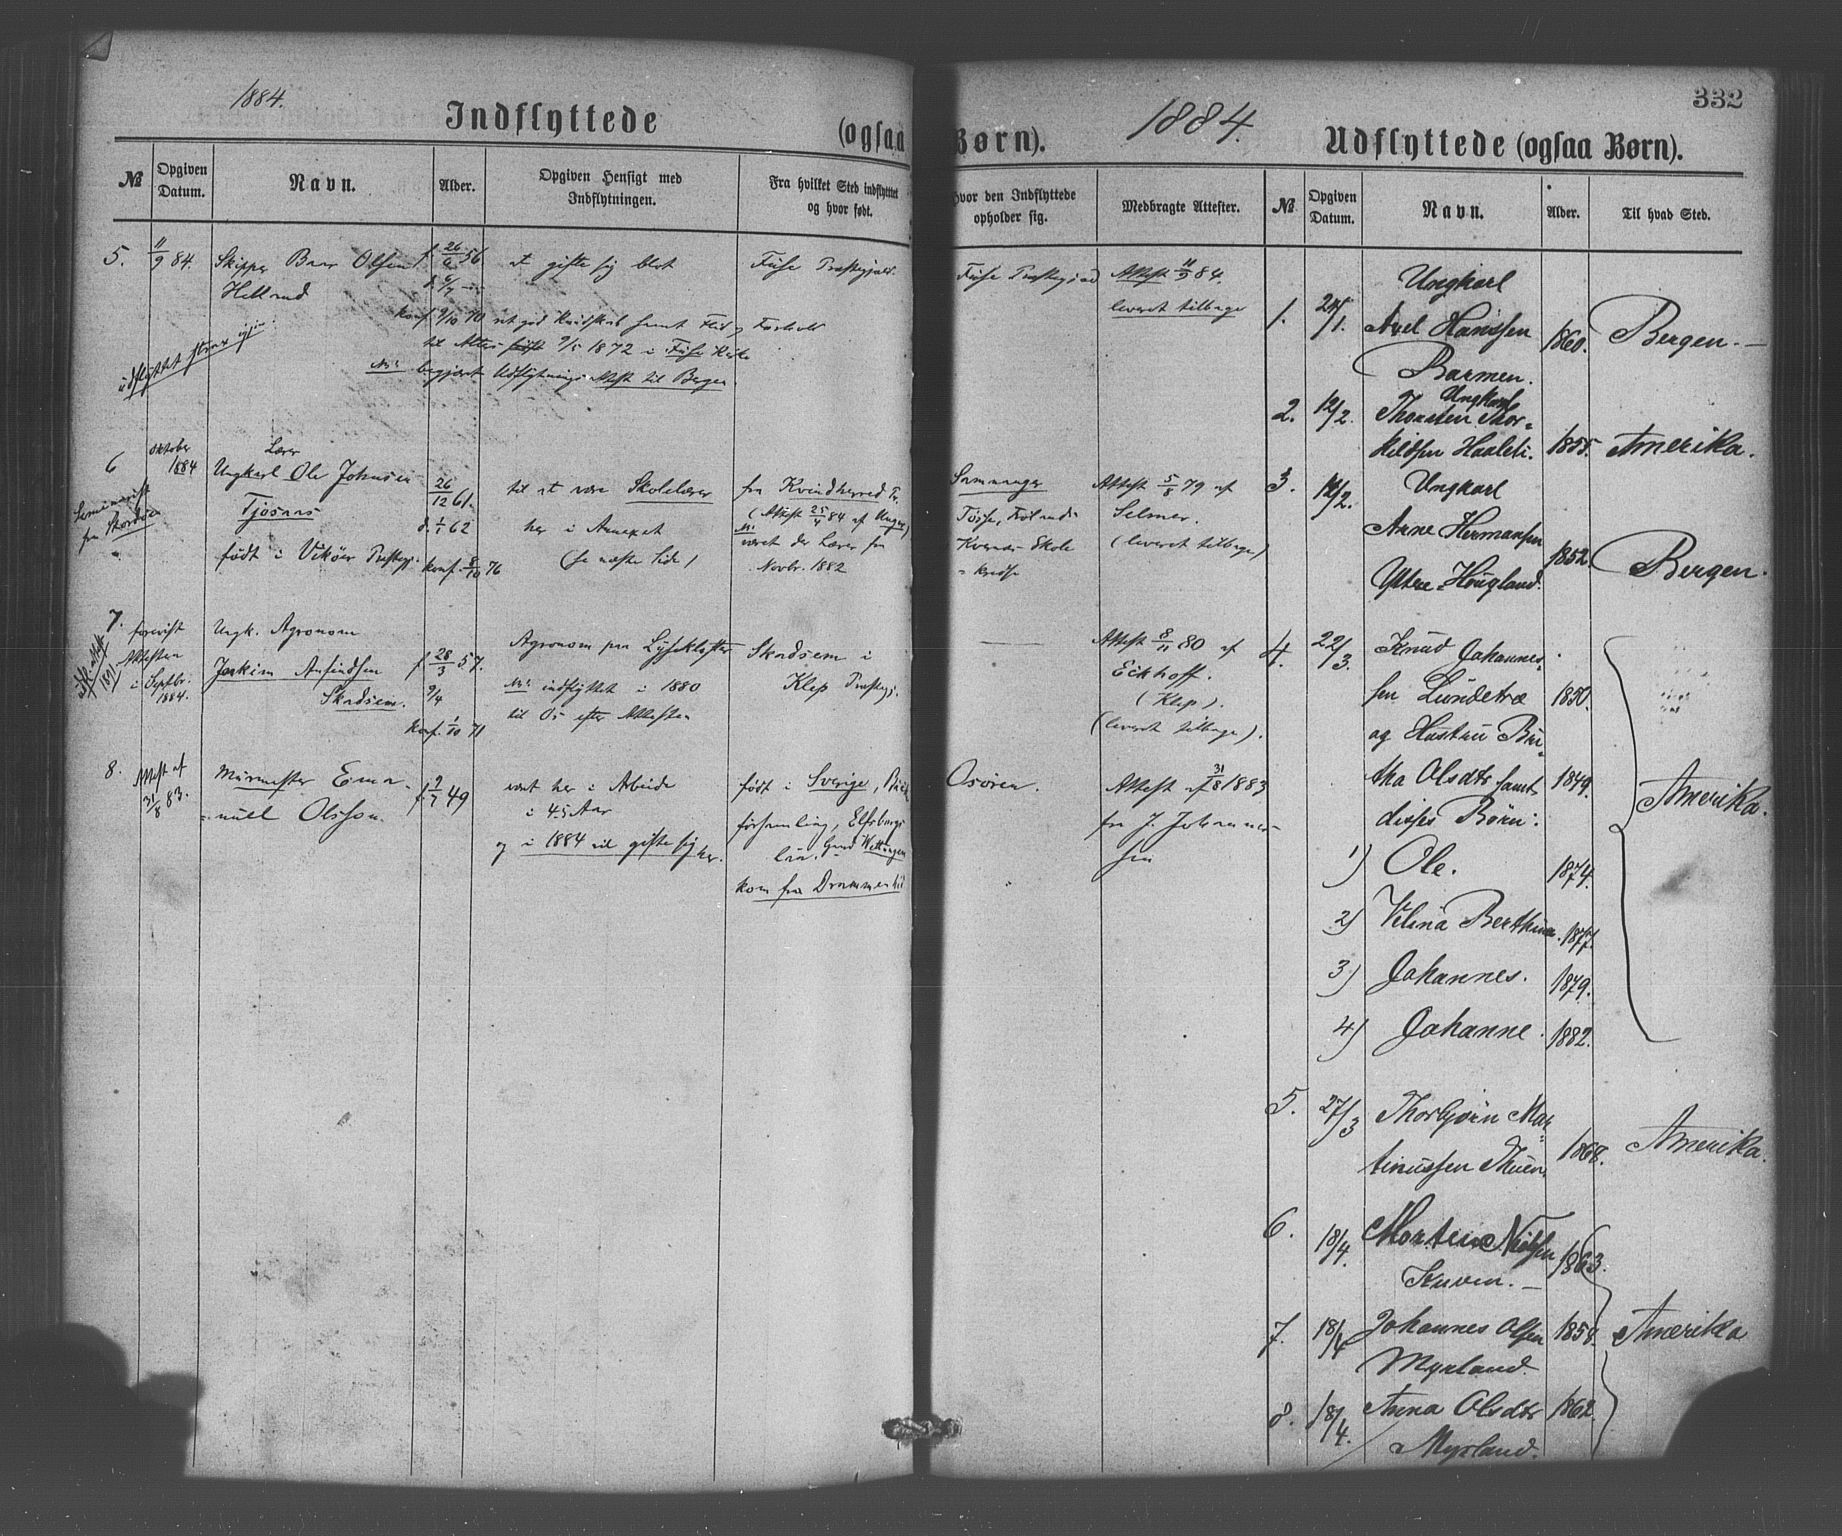 1884.
Indflyttede
(ogsaa Børn).
1884.
332
Udflyttede (ogsaa Børn).
№
Opgiven Datum.
Navn.
Alder.
Opgiven Hensigt med
Indflytningen.
Fra hvilket Sted indflyttet
og hvor født.
hvor den Indflyttede
opholder sig.
Medbragte Attester.
№
Opgiven Datum.
Navn.
Alder.
Til hvad Sted.
5. 11/9 84. Skipper Olsen f 26/6 56 at gifte sig blot
Helland
konf. 9/10 70
til 1872 i
begjært Udflytnings Attest til Bergen
udflyttet strax igjen.
Fuse Præstegjeld
Attest 11/9 84.
leveret tilbage
6 Oktober 1884 Lærer
Ungkarl Ole Johnsen 26/12 61.
Tjosaas d. 1/1 62
født i Vikøer Præstegj. konf. 8/10 76
Seminarist
fra Stordøen
til at være Skolelærer
her i Annexet
(se næste Side)
fra Kvindherred Pr.
(Attest 25/4 84 af Unger)
været der Lærer fra
Novbr. 1882
Samnanger
Kvernes Skole
kreds
Attest 5/8 79 af
Selmer.
(leveret tilbage)
7. forevist
Attesten
i Septbr.
1884.
1891
Ungk. Agronom
Joakim Anfindsen f 28/3 57.
Skadsem. 9/4
konf. 1/10 71
Agronom paa Lysekloster
indflyttet i 1880
til Os efter Attesten
Skadsem i
Klep Præstegj.
Attest 8/11 80 af
Eckhoff.
(Klep).
(leveret tilbage).
8. Attest af
31/8 83.
Murmester Ema-
nuel Olsson.
f 2/7 49
været her i Arbeide
i 4-5 Aar
og i 1884 vil gifte sig her.
født i Sverige,
församling, Elfsborgs
län.
kom fra Drammen hid
Osøren.
Attest af 31/8 1883
fra J. Johannes-
sen
Ungkarl
1. 24/1. Axel Hanssen 1860. Bergen.
Barmen.
Ungkarl
2. 12/2. Thorsten Thor-
kildsen Haaleti. 1855. Amerika.
3. 14/2. Ungkarl
Arne Hermansen
Ytre Hougland. 1852. Bergen.
4. 22/3. Knud Johannes-
sen Lundetræ 1850.
og Hustru Bri-
tha Olsdtr samt 1849. Amerika.
disses Børn:
1) Ole. 1874.
2) Velina Berthina 1877.
3) Johannes. 1879.
4) Johanne. 1882.
5. 27/3 Thorbjørn Mar-
tinussen Thuen 1868. Amerika.
6. 18/4. Morten Nielsen 1863.
Kuven.
7. 18/4 Johannes Olsen 1858. Amerika
Myrland.
8. 18/4. Anna Olsdtr 1862
Myrland.